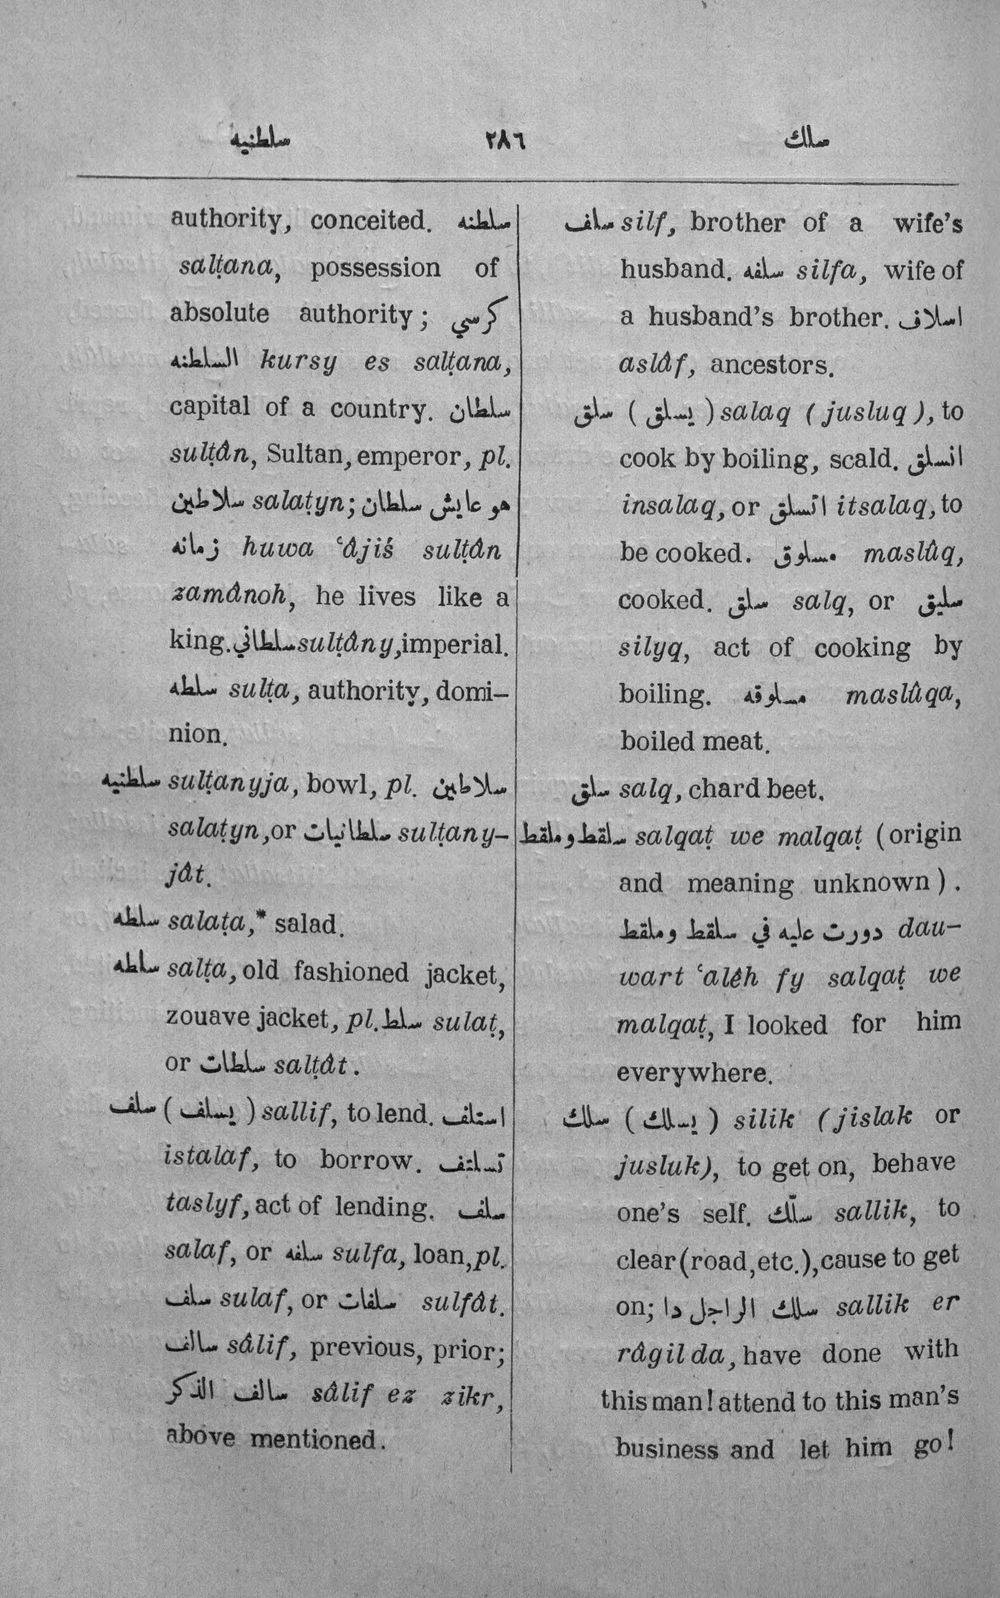 سلطنيه ٢٨٦ سلك
authority, conceited. سلطنه
salṭana, possession of
absolute authority; كرسي
السلطنه kursy es salṭana,
capital of a country. سلطان
sulṭân, Sultan, emperor, pl.
سلاطين salaṭyn; هو عايش سلطان
زمانه huwa ʿâjiś sulṭân
zamânoh, he lives like a
king. سلطاني sulṭâny, imperial.
سلطه sulṭa, authority, domi–
nion.
سلطنيه sulṭanyja, bowl, pl. سلاطين
salaṭyn, or سلطانيات sulṭany–
jât.
سلطه salaṭa,* salad.
سلطه salṭa, old fashioned jacket,
zouave jacket, pl. سلط sulaṭ,
or سلطات salṭât.
سلف (يسلف) sallif, to lend. استلف
istalaf, to borrow. تسلتف
taslyf, act of lending. سلف
salaf, or سلفه sulfa, loan, pl.
سلف sulaf, or سلفات sulfât.
سالف sâlif, previous, prior;
سالف الذكر sâlif ez zikr,
above mentioned.
سلف silf, brother of a wife's
husband. سلفه silfa, wife of
a husband's brother. اسلاف
aslâf, ancestors.
سلق (يسلق) salaq (jusluq), to
cook by boiling, scald. انسلق
insalaq, or اتسلق itsalaq, to
be cooked. مسلوق maslûq,
cooked. سلق salq, or سليق
silyq, act of cooking by
boiling. مسلوقه maslûqa,
boiled meat.
سلق salq, chard beet.
سلقط وملقط salqaṭ we malqaṭ (origin
and meaning unknown).
دورت عليه في سلقط وملقط dau–
wart ʿalêh fy salqaṭ we
malqaṭ, I looked for him
everywhere.
سلك (يسلك) silik (jislak or
jusluk), to get on, behave
one's self. سلّك sallik, to
clear (road, etc.), cause to get
on; سلك الراجل دا sallik er
râgil da, have done with
this man! attend to this man's
business and let him go!